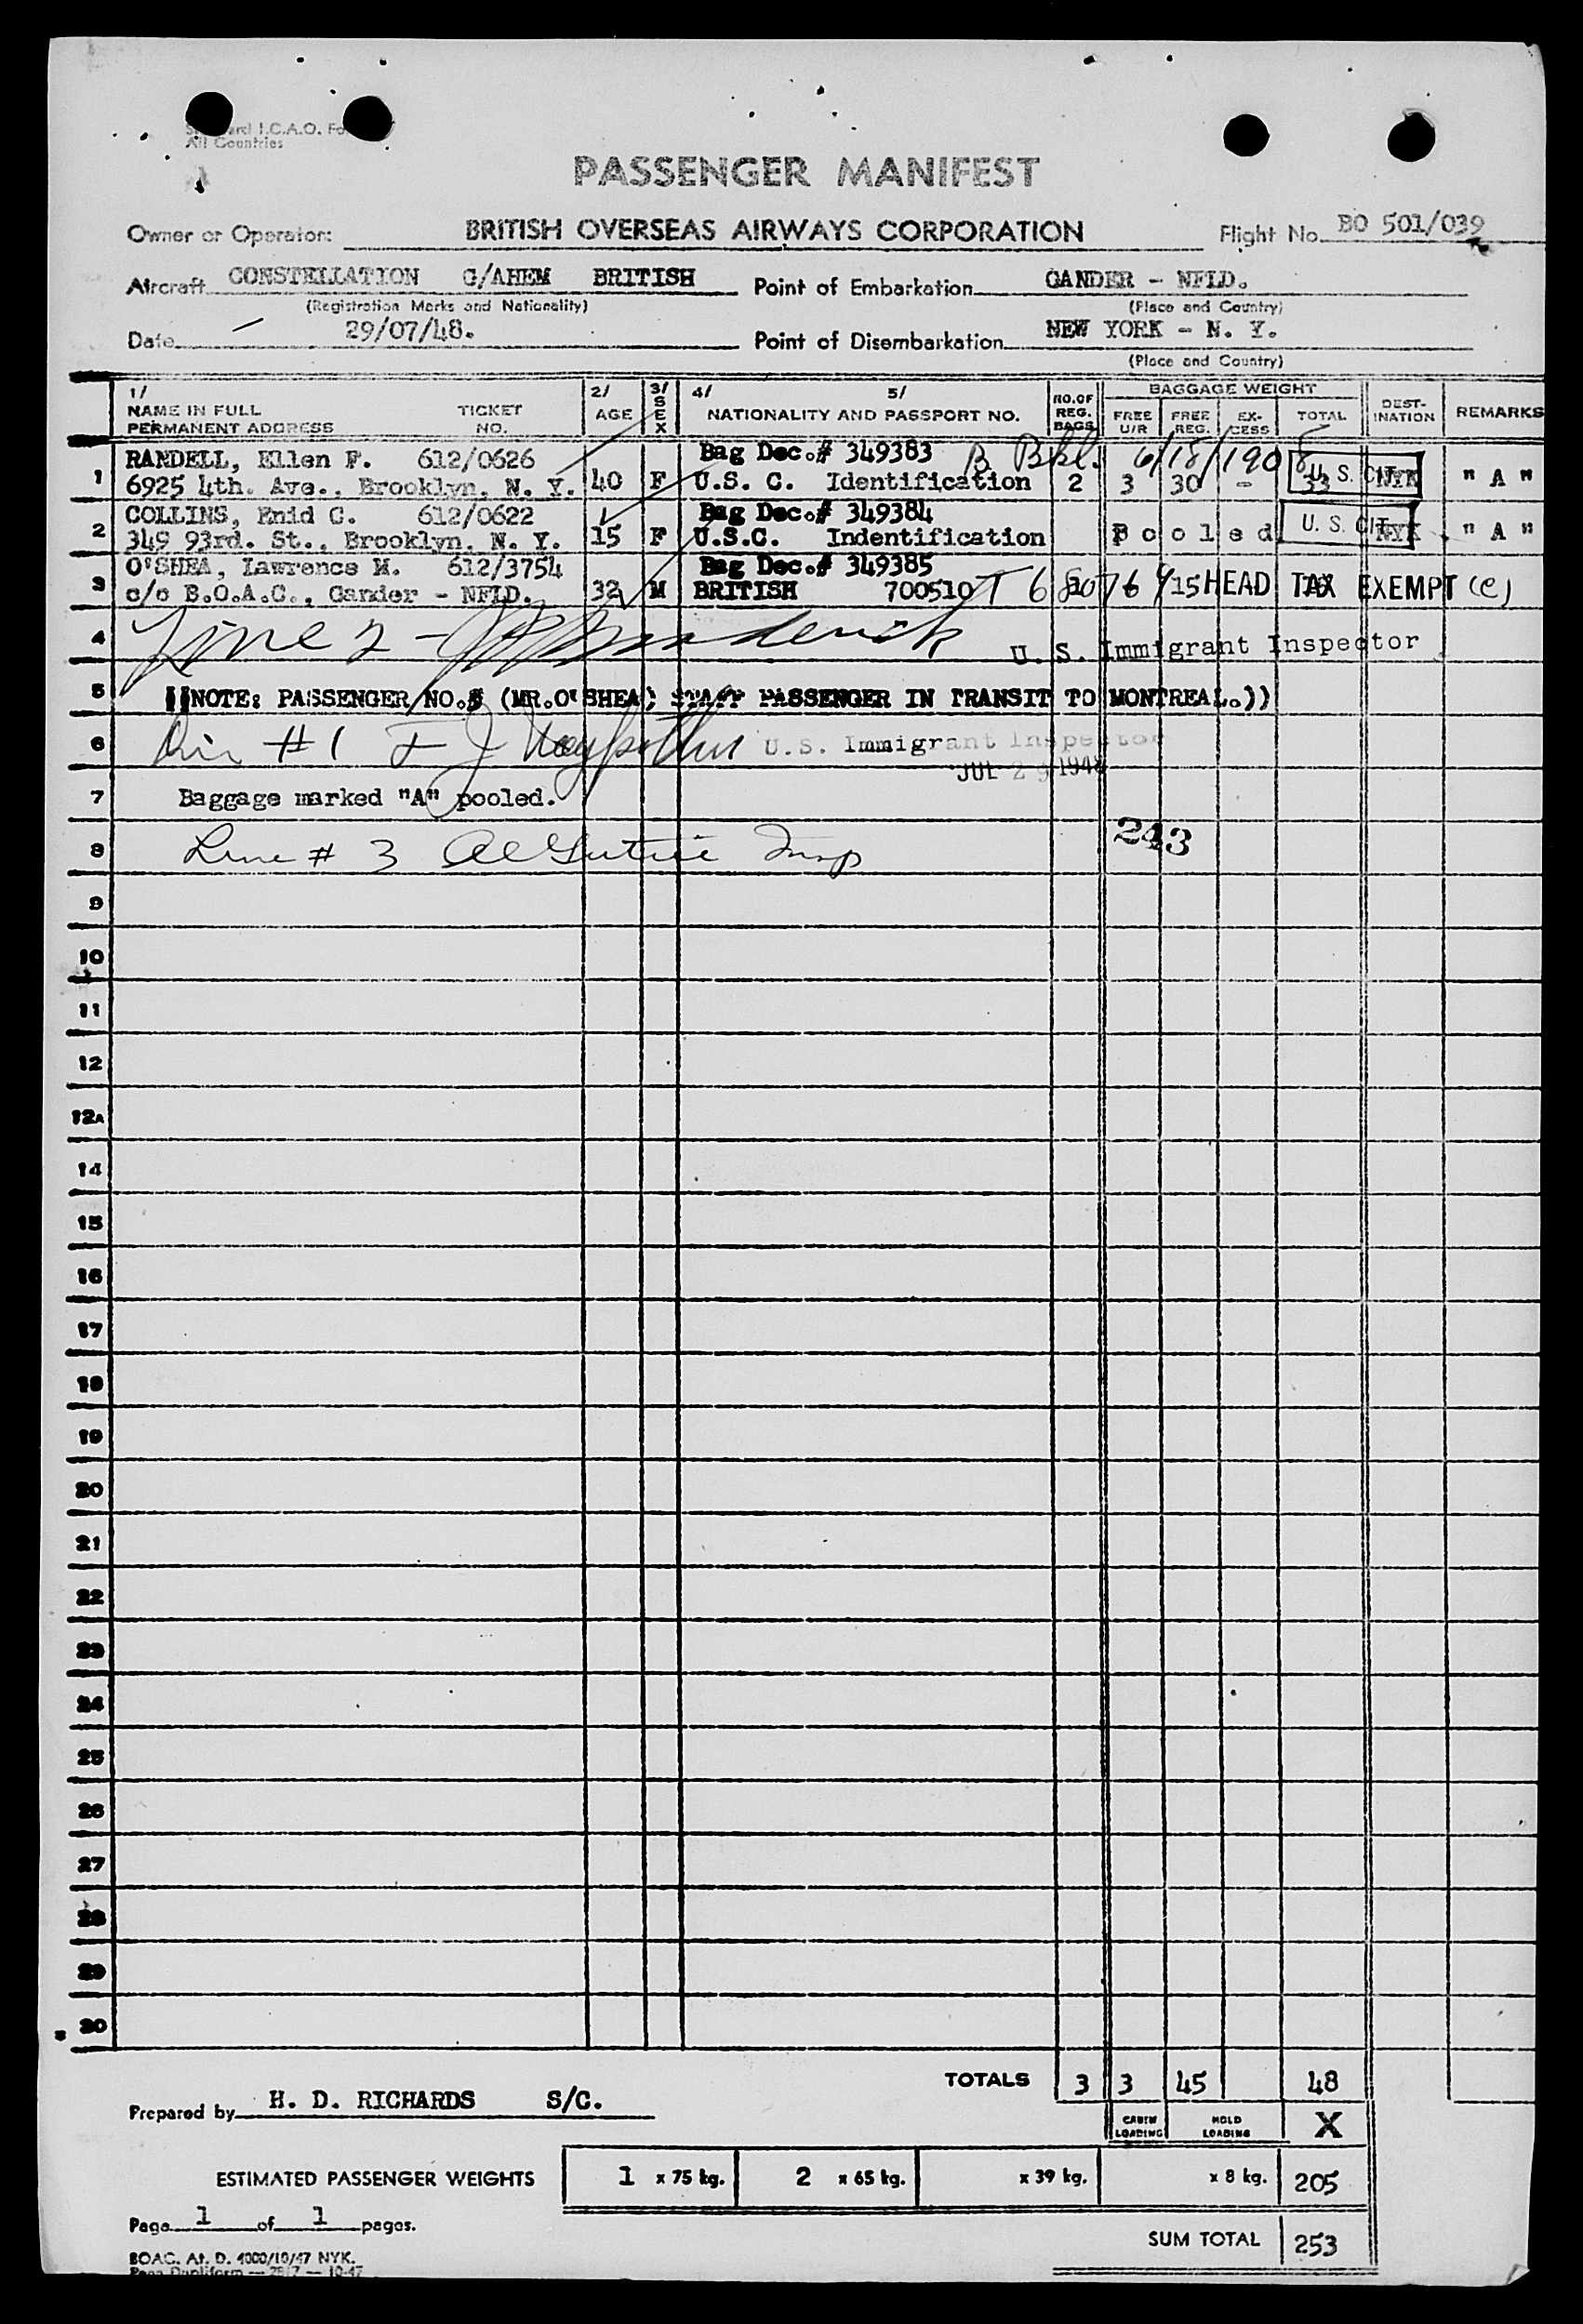 All Countries
PASSENGER MANIFEST
Owner or Operator: BRITISH OVERSEAS AIRWAYS CORPORATION Flight No. BO 501/039
Aircraft CONSTELLATION G/AHEM BRITISH Point of Embarkation GANDER - NFLD.
(Registration Marks and Nationality) (Place and Country)
Date 29/07/48. Point of Disembarkation NEW YORK - N. Y.
(Place and Country)
1/ 2/ 3/ 4/ 5/ NO. OF REG. BAGS BAGGAGE WEIGHT
NAME IN FULL TICKET AGE SEX NATIONALITY AND PASSPORT NO. FREE U/R FREE REG. EX-CESS TOTAL DEST-INATION REMARKS
PERMANENT ADDRESS NO.
RANDELL, Ellen F. 612/0626 Bag Dec.# 349383 B Bkl. 6/18/1908
1 6925 4th. Ave., Brooklyn, N. Y. 40 F U.S. C. Identification 2 3 30 - 33 U. S. CIT. NYK "A"
COLLINS, Enid C. 612/0622 Bag Dec.# 349384
2 349 93rd. St., Brooklyn, N. Y. 15 F U.S.C. Indentification Pooled U. S. CIT. NYK "A"
O'SHEA, Lawrence M. 612/3754 Bag Dec.# 349385
3 c/o B.O.A.C., Gander - NFLD. 32 M BRITISH 700510 15 HEAD TAX EXEMPT (e)
4 Line 2 - U. S. Immigrant Inspector
5 ((NOTE: PASSENGER NO.3 (MR.O'SHEA) STAFF PASSENGER IN TRANSIT TO MONTREAL.))
6 #1 U.S. Immigrant Inspector
JUL 29 1948
7 Baggage marked "A" pooled.
8 Line # 3 Insp 243
9
10
11
12
12A
14
15
16
17
18
19
20
21
22
23
24
25
26
27
28
29
30
TOTALS 3 3 45 48
Prepared by H. D. RICHARDS S/C.
CABIN LOADING HOLD LOADING X
ESTIMATED PASSENGER WEIGHTS 1 x 75 kg. 2 x 65 kg. x 39 kg. x 8 kg. 205
Page 1 of 1 pages.
SUM TOTAL 253
BOAC. At. D. 4000/10/47 NYK.